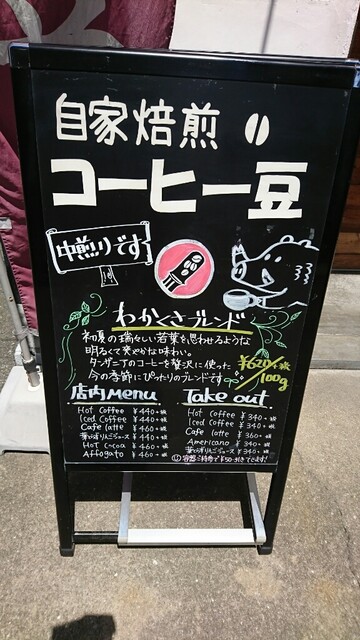 自家焙煎
コーヒー豆
中煎りです
わかくさブレンド
初夏の瑞々しい若葉を思わせるような
明るくて爽やかな味わい。
タンザニアのコーヒーを贅沢に使った
今の季節にぴったりのブレンドです
¥620+税/100g
店内Menu
Hot Coffee ¥440+税
Iced Coffee ¥440+税
Cafe latte ¥460+税
葉とらずりんごジュース ¥440+税
Hot cocoa ¥460+税
Affogato ¥460+税
Take out
Hot Coffee ¥340+税
Iced Coffee ¥340+税
Cafe latte ¥360+税
Americano ¥340+税
葉とらずりんごジュース ¥340+税
容器ご持参で¥50引きです!